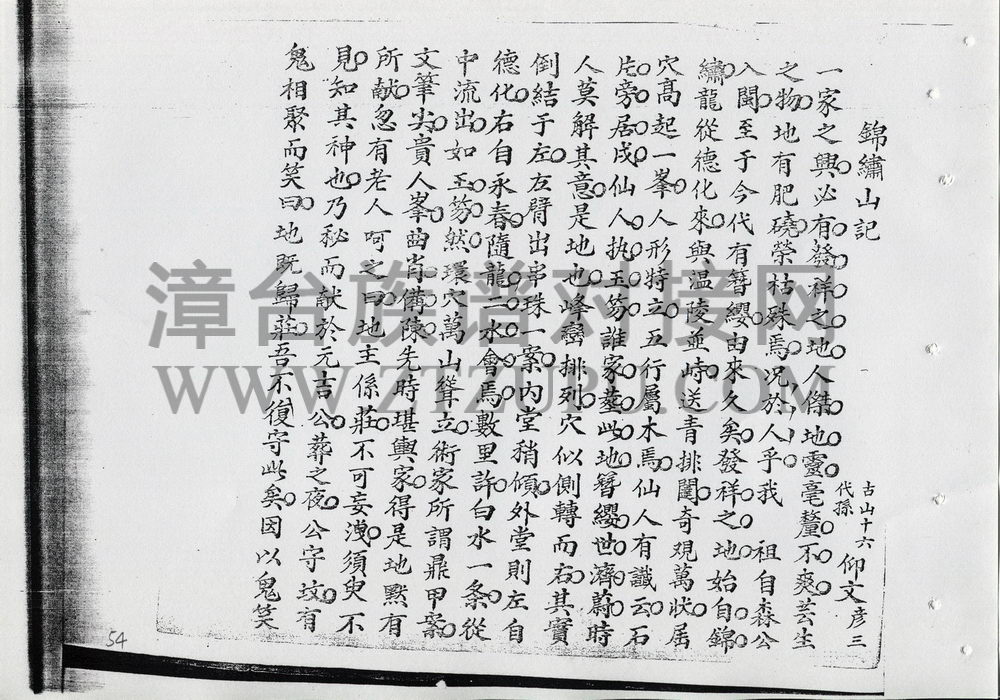 錦繡山記
古山十六代孫 仰文彥三
一家之興必有發祥之地人傑地靈毫釐不爽芸生
之物地有肥磽榮枯殊焉况於人乎我 祖自森公
入閩至于今代有簪纓由來久矣發祥之地始自錦
繡龍從德化來與温陵並峙送青排闥奇觀萬狀居
穴高起一峯人形特立五行屬木焉仙人有讖云石
片旁居戌仙人执玉笏誰家塟此地簪纓世濟蔚時
人莫解其意是地也峰巒排列穴似側轉而右其實
倒結于左左臂出串珠一案内堂稍傾外堂則左自
德化右自永春隨龍二水會焉數里許白水一条從
中流出如玉笏然環穴萬山聳立術家所謂鼎甲案
文筆尖貴人峯曲肖備陳先時堪輿家得是地黙有
所献忽有老人呵之曰地主係莊不可妄洩須臾不
見知其神也乃秘而献於元吉公葬之夜公守坟有
鬼相聚而笑曰地既歸莊吾不復守此矣因以鬼笑
54
漳台族谱对接网
WWW.ZTZUPU.COM